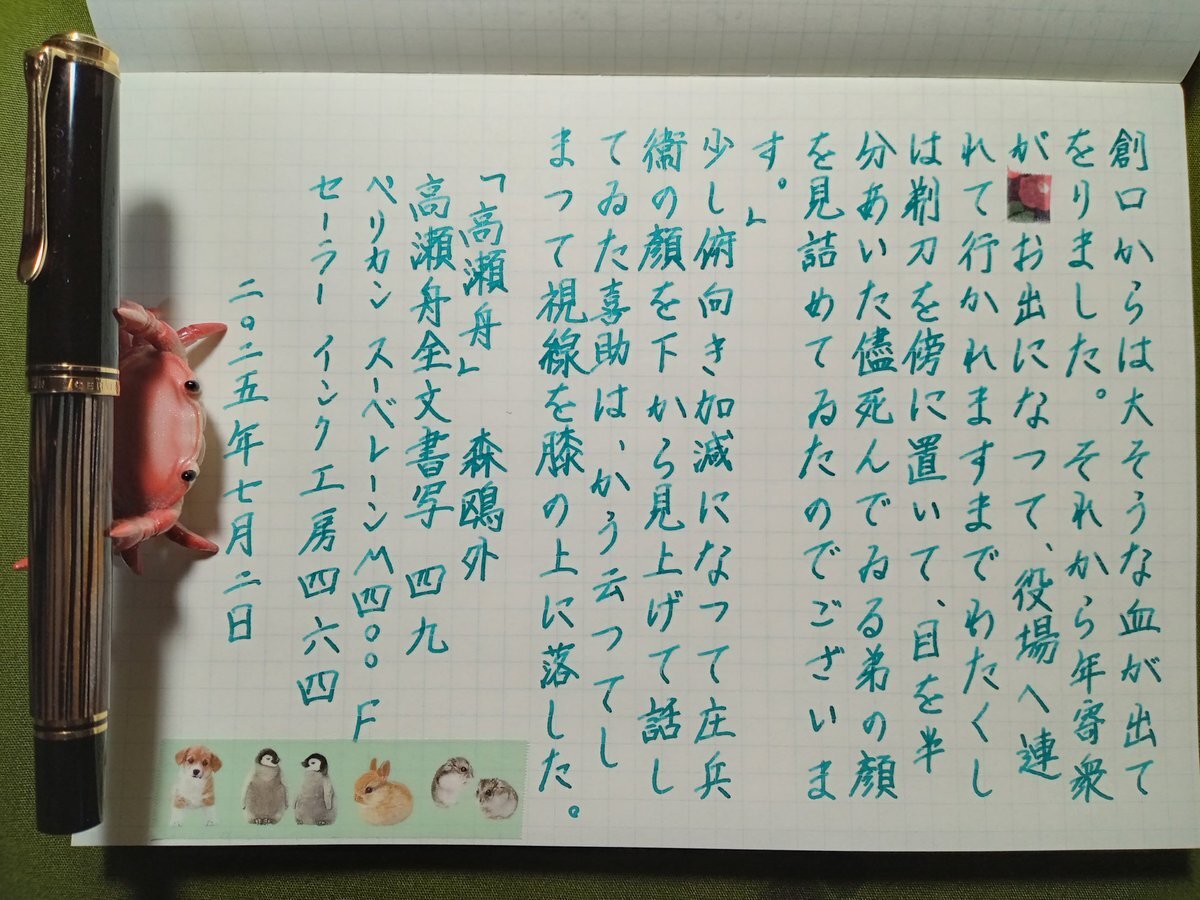 創口からは大そうな血が出て
をりました。それから年寄衆
がお出になつて、役場へ連
れて行かれますまでわたくし
は剃刀を傍に置いて、目を半
分あいた儘死んでゐる弟の顔
を見詰めてゐたのでございま
す。」
少し俯向き加減になつて庄兵
衞の顏を下から見上げて話し
てゐた喜助は、かう云つてし
まつて視線を膝の上に落した。
「高瀬舟」 森鴎外
高瀬舟全文書写 四九
ペリカン スーベレーンM四〇〇 F
セーラー インク工房四六四
二〇二五年七月二日